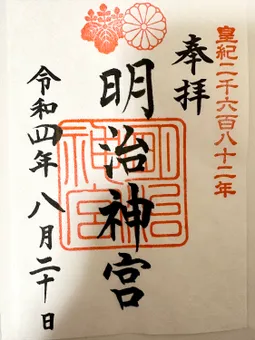 皇紀二千六百八十二年
奉拝
明治神宮
明治神宮
令和四年 八月二十日